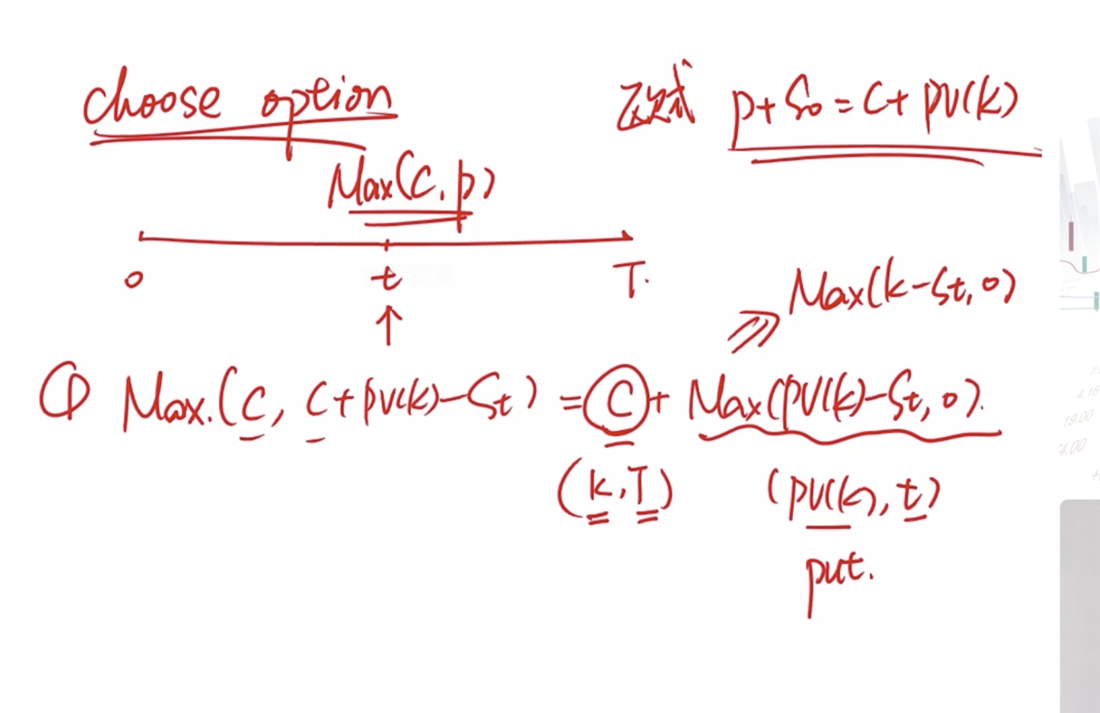 choose option
反式 p+S₀=C+PV(k)
Max(C,p)
0 t T.
↑
Max(k-St,0)
① Max.(C, C+PV(k)-St) = C + Max(PV(k)-St,0).
(k,T) (PV(k),t)
put.